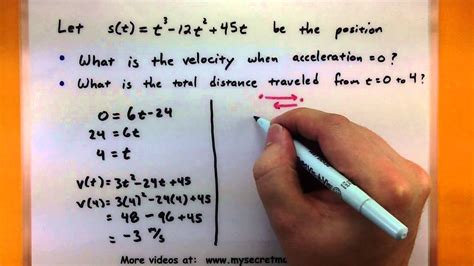 Let s(t) = t³-12t²+45t be the position
• What is the velocity when acceleration =0?
• What is the total distance traveled from t=0 to 4?
0 = 6t-24
24 = 6t
4 = t
v(t) = 3t²-24t+45
v(4) = 3(4)²-24(4)+45
= 48 - 96 + 45
= -3 m/s
More videos at: www.mysecretma